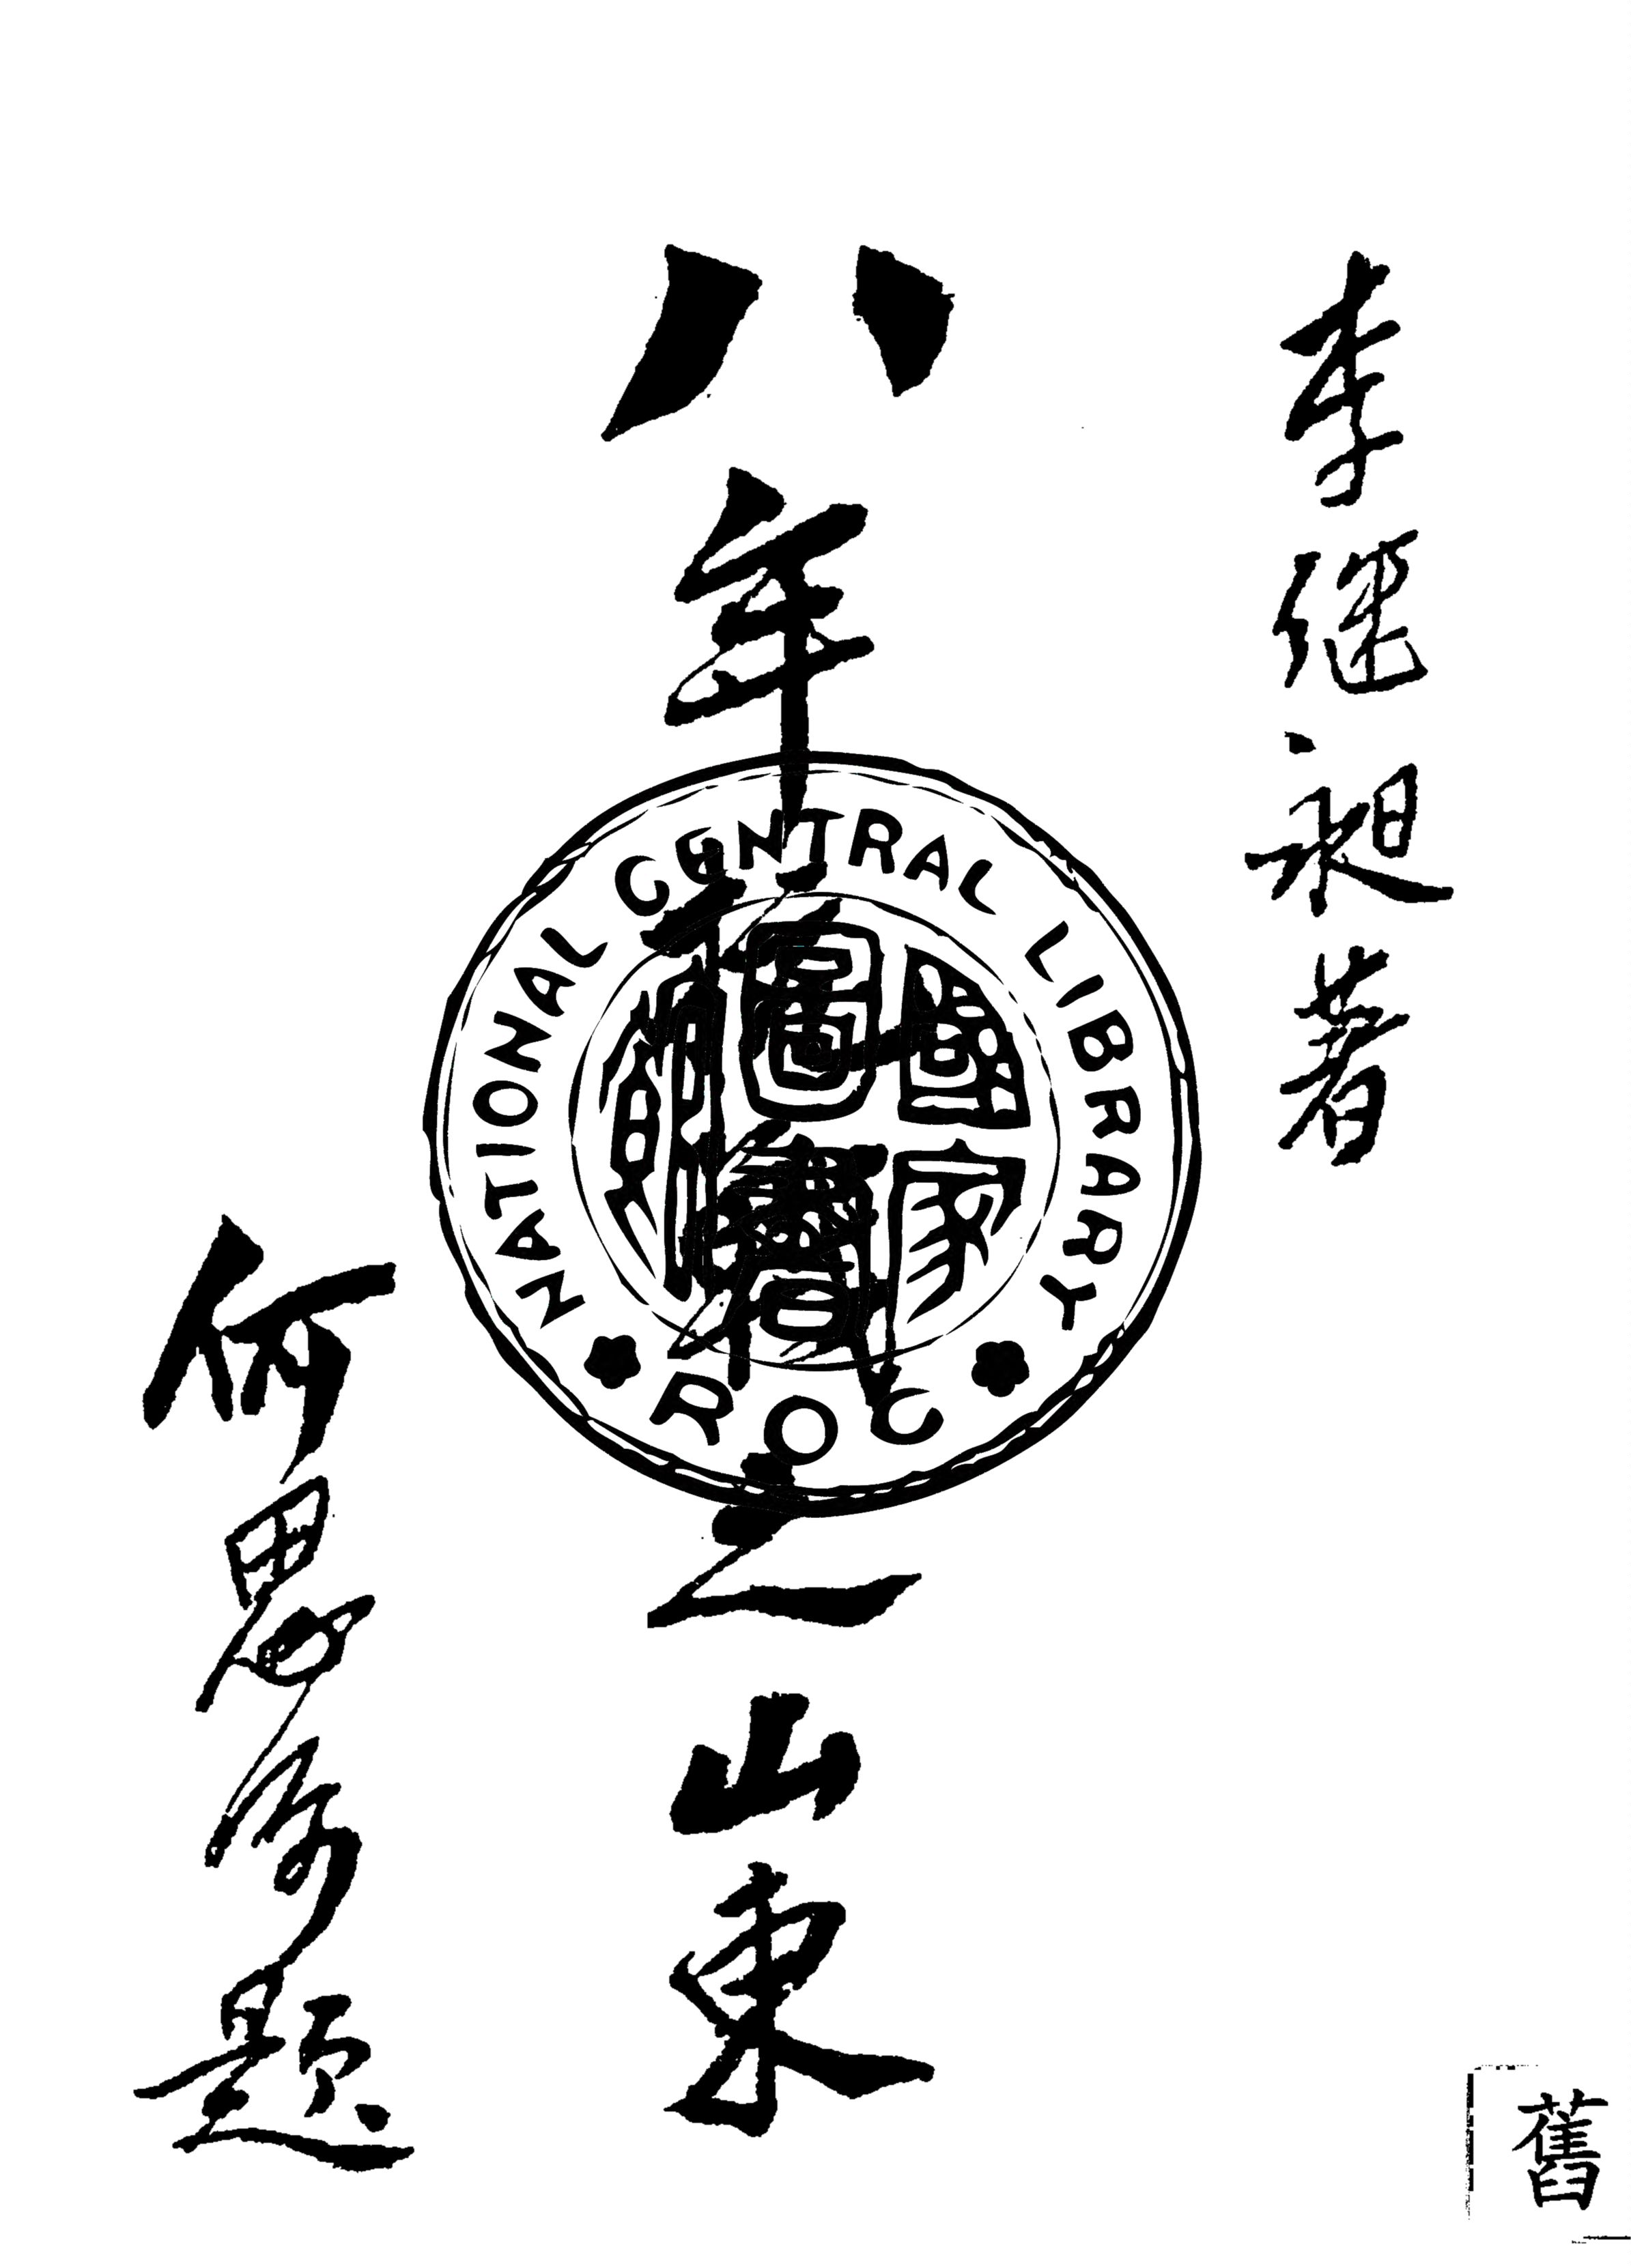 李昶著
八年之山東
何思源題
NATIONAL CENTRAL LIBRARY
國家圖書館
R O C
舊